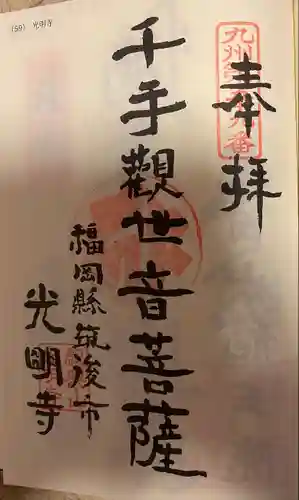 (59) 光明寺
奉拝
千手觀世音菩薩
福岡縣筑後市
光明寺